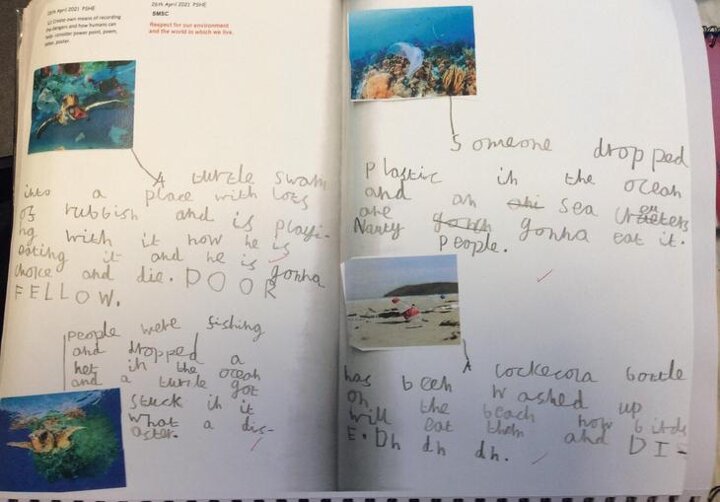 26th April 2021 PSHE
LI Create own means of recording
the dangers and how humans can
help - consider power point, poem,
letter, poster.
26th April 2021 PSHE
SMSC
Respect for our environment
and the world in which we live.
A turtle swam
into a place with lots
of rubbish and is playi-
ng with it now he is
eating it and he is gonna
choice and die. DOOR
FELLOW.
people were fishing
and dropped a
net in the ocean
and a turtle got
stuck in it
what a dis-
aster.
Someone dropped
plastic in the ocean
and an sea
are gonna eat it.
Nauty people.
A cockecola bottle
has been washed up
on the beach now birds
will eat them and DI-
E. Dh dh dh.